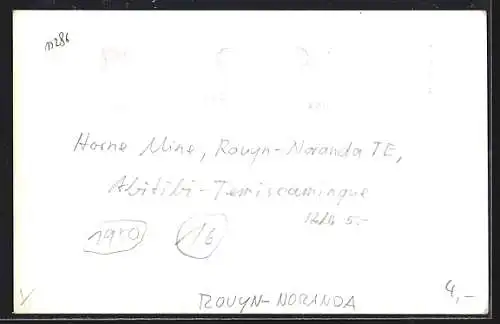 11286
Horne Mine, Rouyn-Noranda TE,
Abitibi-Temiscamingue
5.-
16
ROUYN-NORANDA
4,-